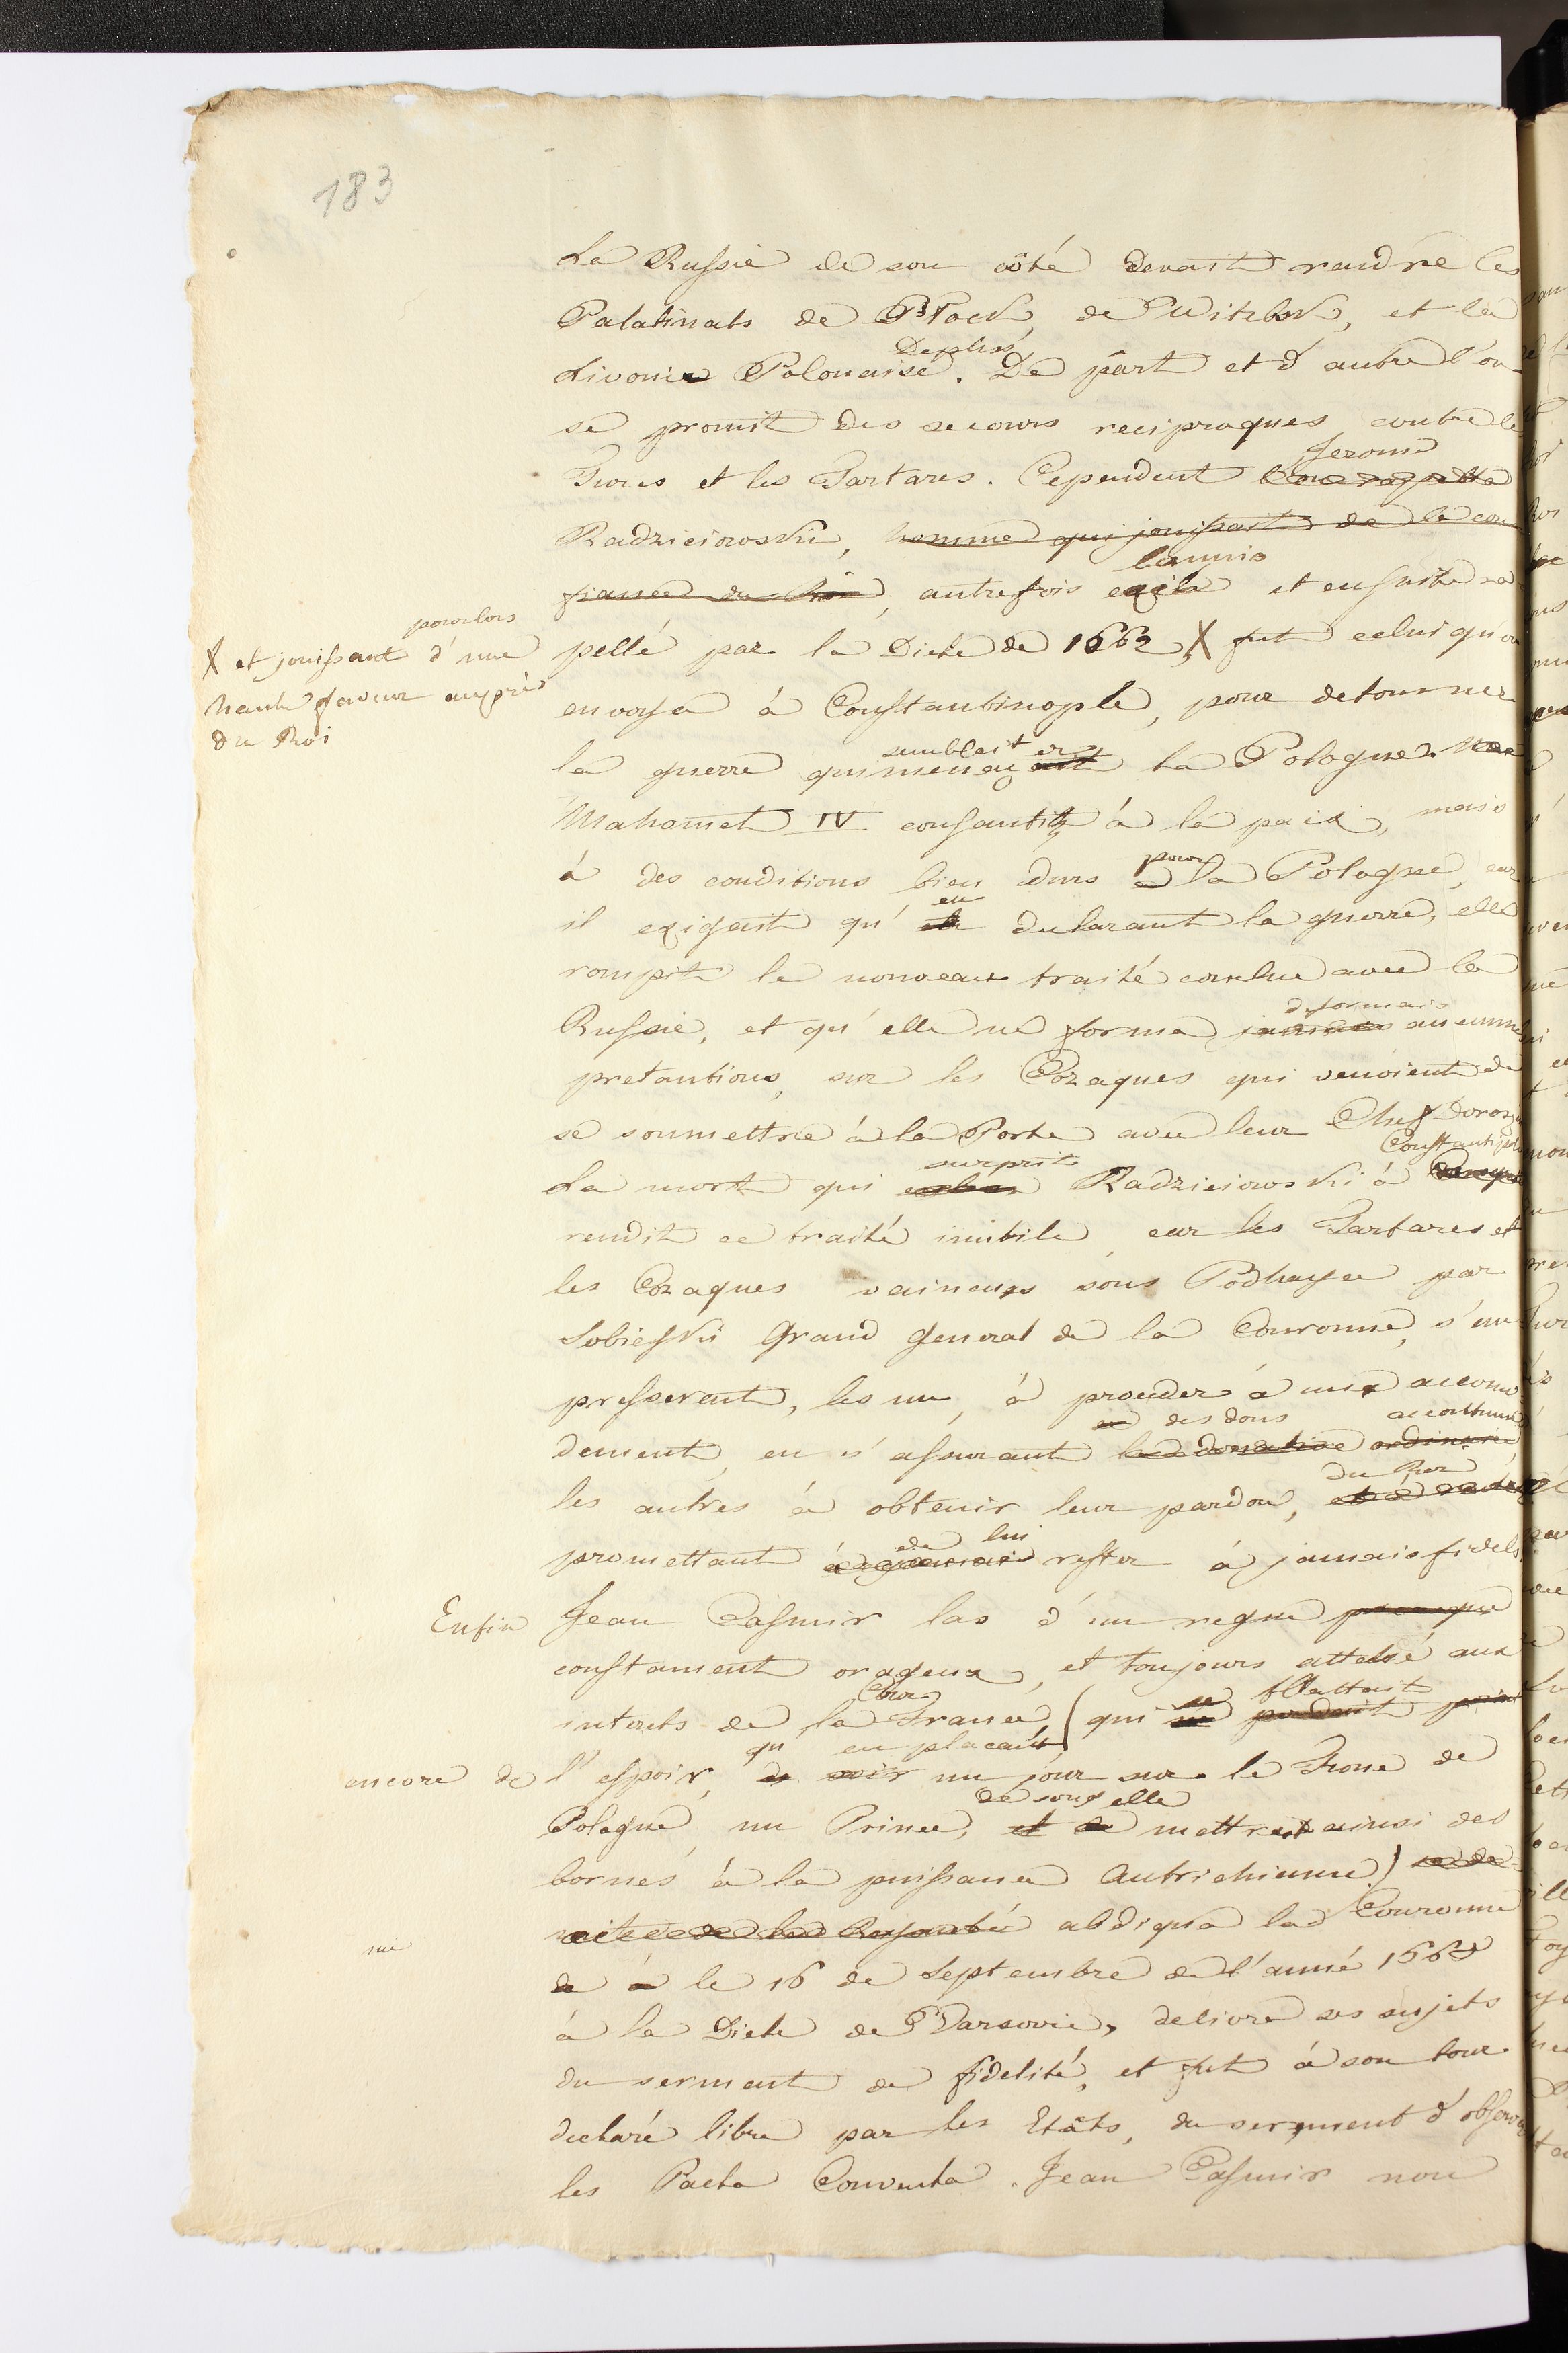 183
La Russie de son côté devait rendre les
Palatinats de Plock, de Witebsk, et la
Deplus
Livonie Polonaise. De part et d'autre l'on
se promit des secours reciproques contre le
Jerome
Turcs et les Tartares. Cependent
Radzieiowski, homme qui jouissait de la con
banni
fiance du Roi, autrefois exilé et ensuite ra
pellé par la Diete de 1662 X fut celui qu'on
pour lors
X et jouissant d'une
haute faveur auprès
du Roi
envoya à Constantinople, pour detourner
semblait er
la guerre qui menaçait la Pologne.
Mahomet IV consantit à la paix, mais
pour
à des conditions bien durs à la Pologne, car
en
il exigeait qu' declarant la guerre, elle
rompit le nouveau traité conclue avec la
desormais
Russie, et qu'elle ne forma jamais aucunne
pretantions, sur les Cozaques qui venoient de
se soumettre à la Porte avec leur Chef Dorosz
surprit Constantipol
La mort qui Radzieiowski à
rendit ce traité inutile, car les Tartares et
les Cozaques vaincues sous Podhayce par
Sobieski Grand General de la Couronne, s'em
presserent, les un, à proceder à une accomo
des dons accoutumés
dement, en s'assurant les donative ordinaire
du Roi
les autres à obtenir leur pardon,
de lui
promettant à jamais rester à jamais fidels
Enfin Jean Casmir las d'un regne presque
constament orageux, et toujours attaché aux
Cour se flattait
interets de la France (qui ne perdait point
qu' en placant
encore de l'espoir, de voir un jour sur le Trone de
de sous elle
Pologne un Prince, et de mettre ainsi des
bornes à la puissance Autrichienne)
abdiqua la Couronne
le 16 de Septembre de l'anné 1668
à la Diete de Varsovie, delivre ses sujets
du serment de fidelité, et fut à son tour
declaré libre par les Etâts, du serment d'observer
les Pacta Conventa. Jean Casmir non